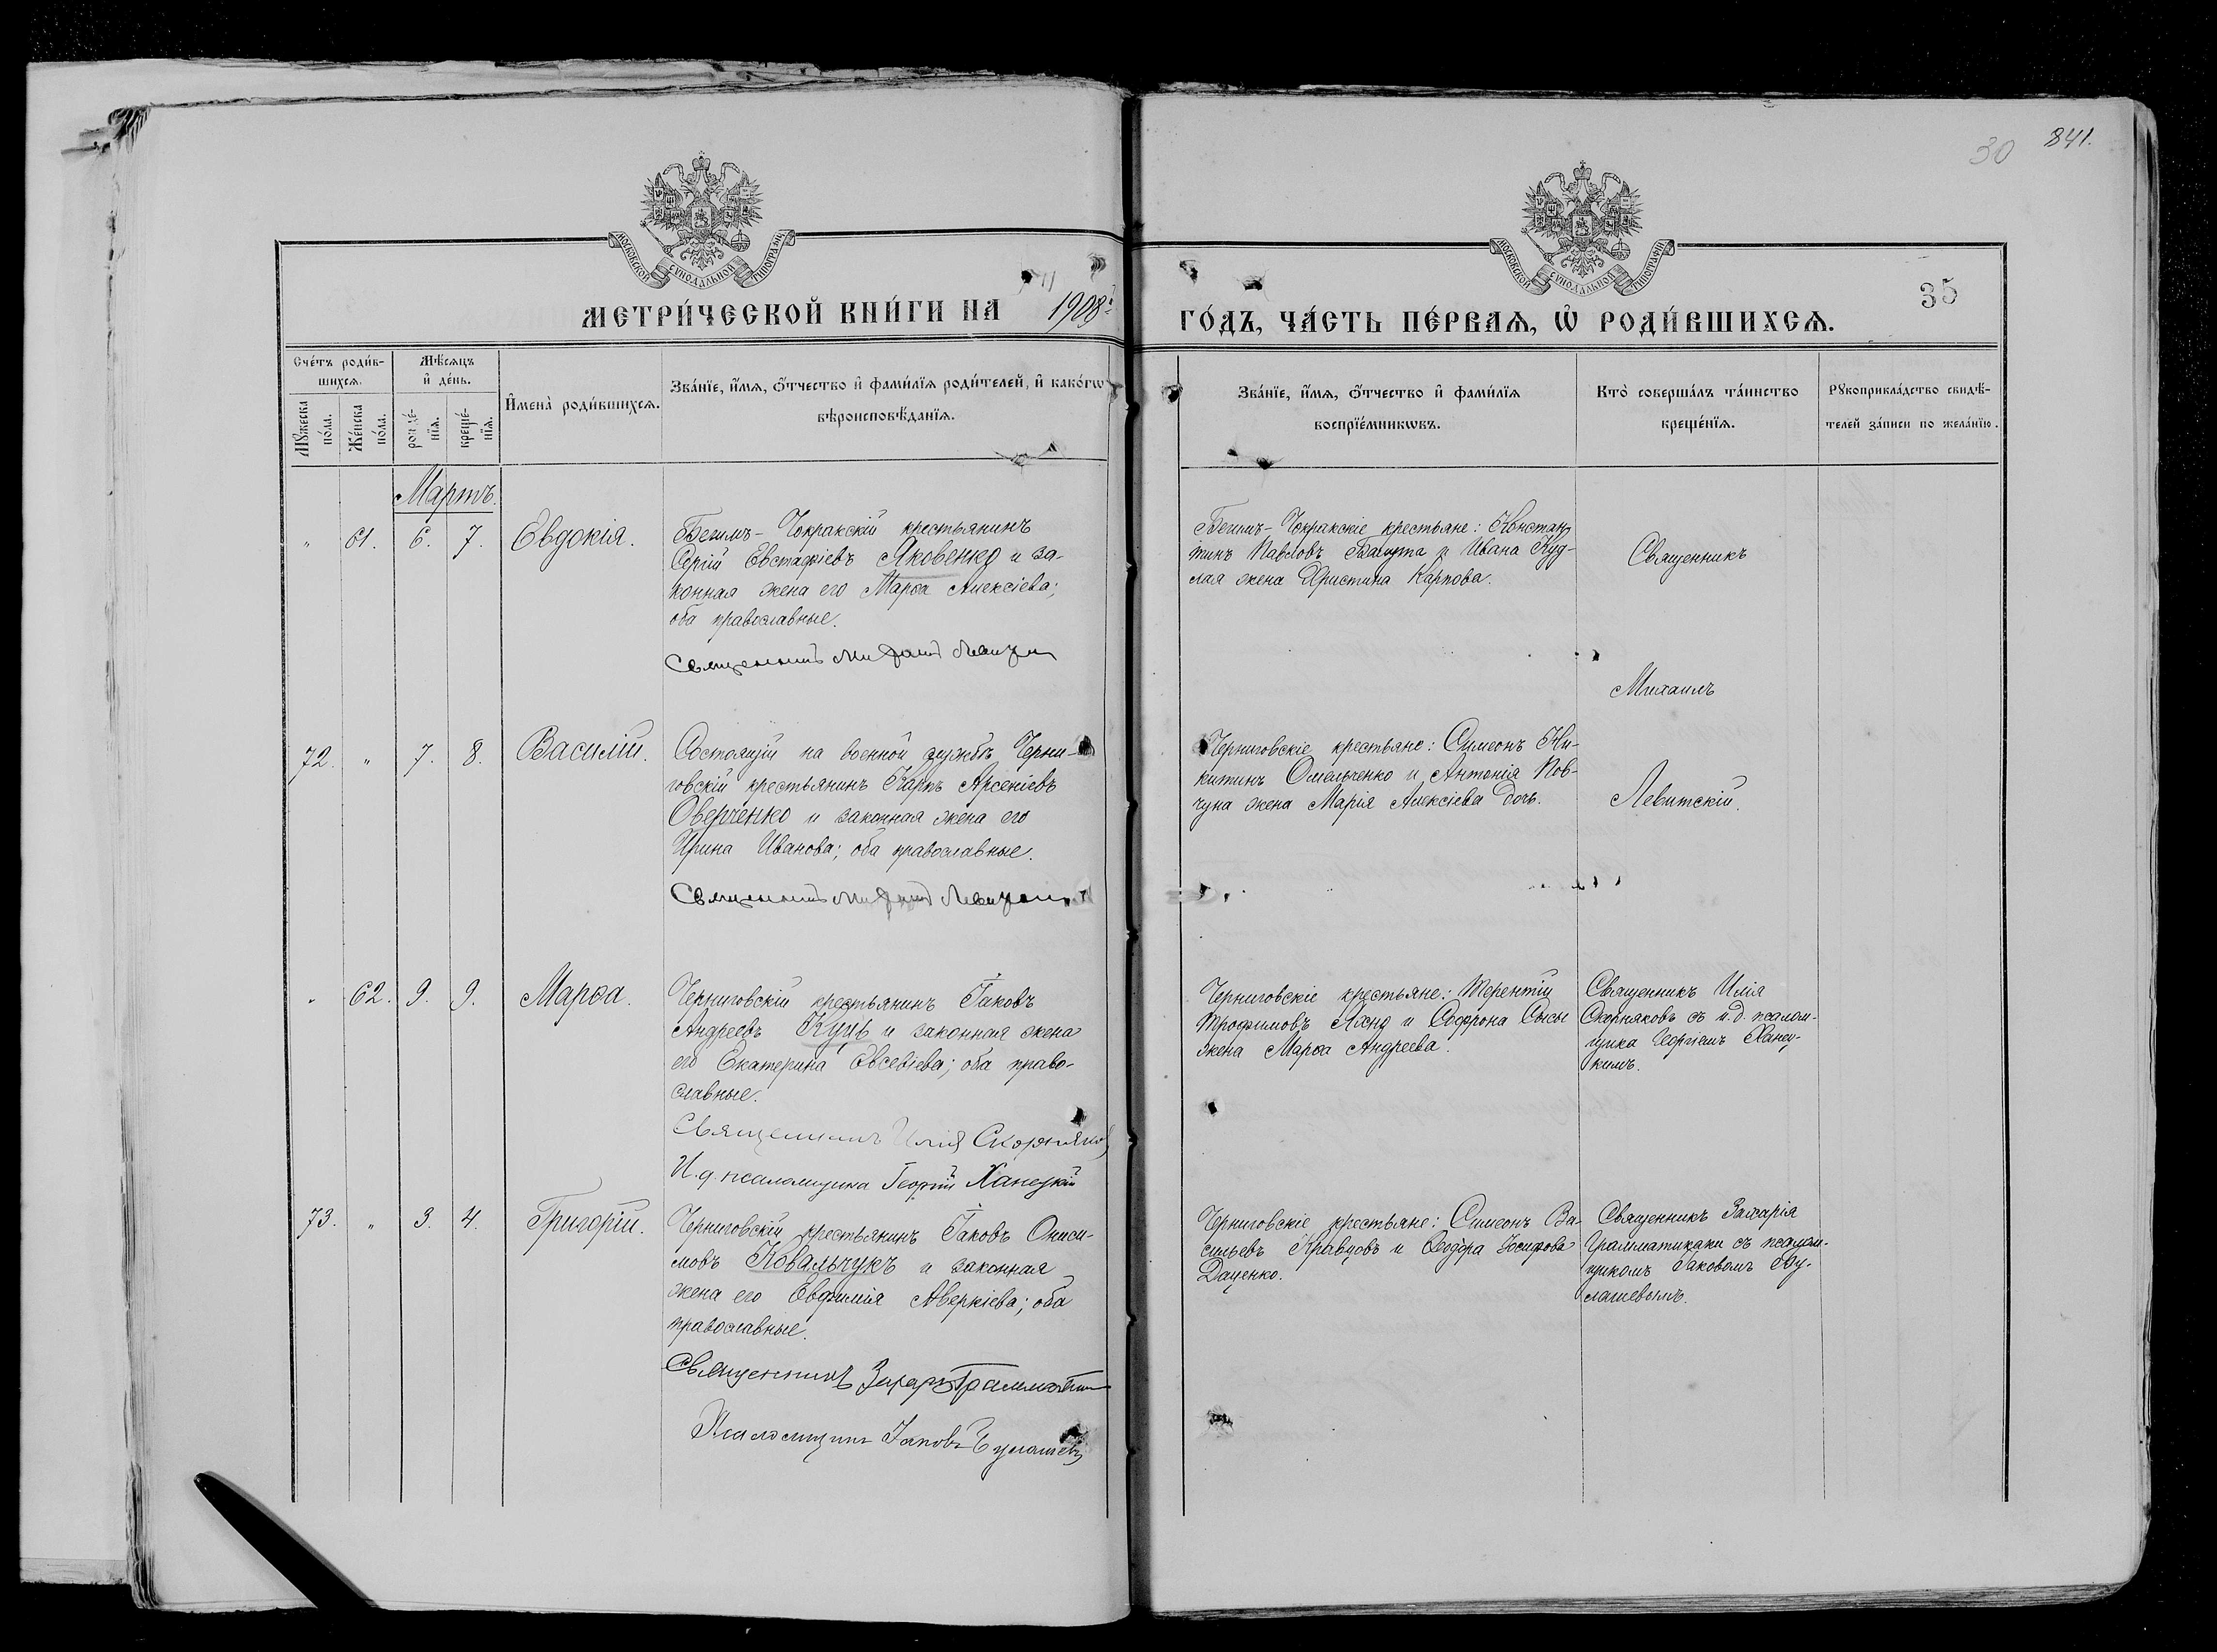 30 841.
МОСКОВСКОЙ СѴНОДАЛЬНОЙ ТИПОГРАФІИ
МОСКОВСКОЙ СѴНОДАЛЬНОЙ ТИПОГРАФІИ
35
МЕТРИ́ЧЕСКОЙ КНИ́ГИ НА 1908 г.
ГО́ДЪ, ЧА́СТЬ ПЕ́РВАѦ, Ѡ҆ РОДИ́ВШИХСѦ.
Сче́тъ роди́в-
шихсѧ.
Мѣ́сѧцъ
и҆ де́нь.
Мꙋ́жеска
по́ла.
Же́нска
по́ла.
рожде́-
нїѧ.
креще́-
нїѧ.
И҆мена̀ роди́вшихсѧ.
Зва́нїе, и҆́мѧ, ѻ҆́тчество и҆ фами́лїѧ роди́телей, и҆ како́гѡ
вѣроисповѣ́данїѧ.
Зва́нїе, и҆́мѧ, ѻ҆́тчество и҆ фами́лїѧ
воспрїе́мникѡвъ.
Кто̀ соверша́лъ та́инство
креще́нїѧ.
Рꙋкоприкла́дство свидѣ́-
телей за́писи по жела́нїю.
Мартъ.
" 61. 6. 7. Евдокія.
Бегимъ-Чокракскій крестьянинъ
Сергій Евстафіевъ Яковенко и за-
конная жена его Марѳа Алексіева;
оба православные.
Священникъ Михаилъ Левитскій
Бегимъ-Чокракскіе крестьяне: Констан-
тинъ Павловъ и Ивана Куд-
лая жена Христина Карпова.
Священникъ
Михаилъ
Левитскій.
72. " 7. 8. Василій.
Состоящій на военной службѣ Черни-
говскій крестьянинъ Карпъ Арсеніевъ
Оверченко и законная жена его
Ирина Иванова; оба православные.
Священникъ Михаилъ Левитскій
Черниговскіе крестьяне: Симеонъ Ни-
китинъ Омельченко и Антонія Пов-
чуна жена Марія Алексіева дочь.
" 62. 9. 9. Марѳа.
Черниговскій крестьянинъ Іаковъ
Андреевъ Куць и законная жена
его Екатерина Евсевіева; оба право-
славные.
Священникъ Илія Скорняковъ
И. д. псаломщика Георгій Ханецкій
Черниговскіе крестьяне: Терентій
Трофимовъ Ляхно и Софрона Сысы
жена Марѳа Андреева.
Священникъ Илія
Скорняковъ съ и. д. псалом-
щика Георгіемъ Ханец-
кимъ.
73. " 3. 4. Григорій.
Черниговскій крестьянинъ Іаковъ Ониси-
мовъ Ковальчукъ и законная
жена его Евфимія Аверкіева; оба
православные.
Священникъ Захарія Грамматикаки
Псаломщикъ Іаковъ Булашевъ
Черниговскіе крестьяне: Симеонъ Ва-
сильевъ Кравцовъ и Ѳеодора Іосифова
Даценко.
Священникъ Захарія
Грамматикаки съ псалом-
щикомъ Іаковомъ Бу-
лашевымъ.